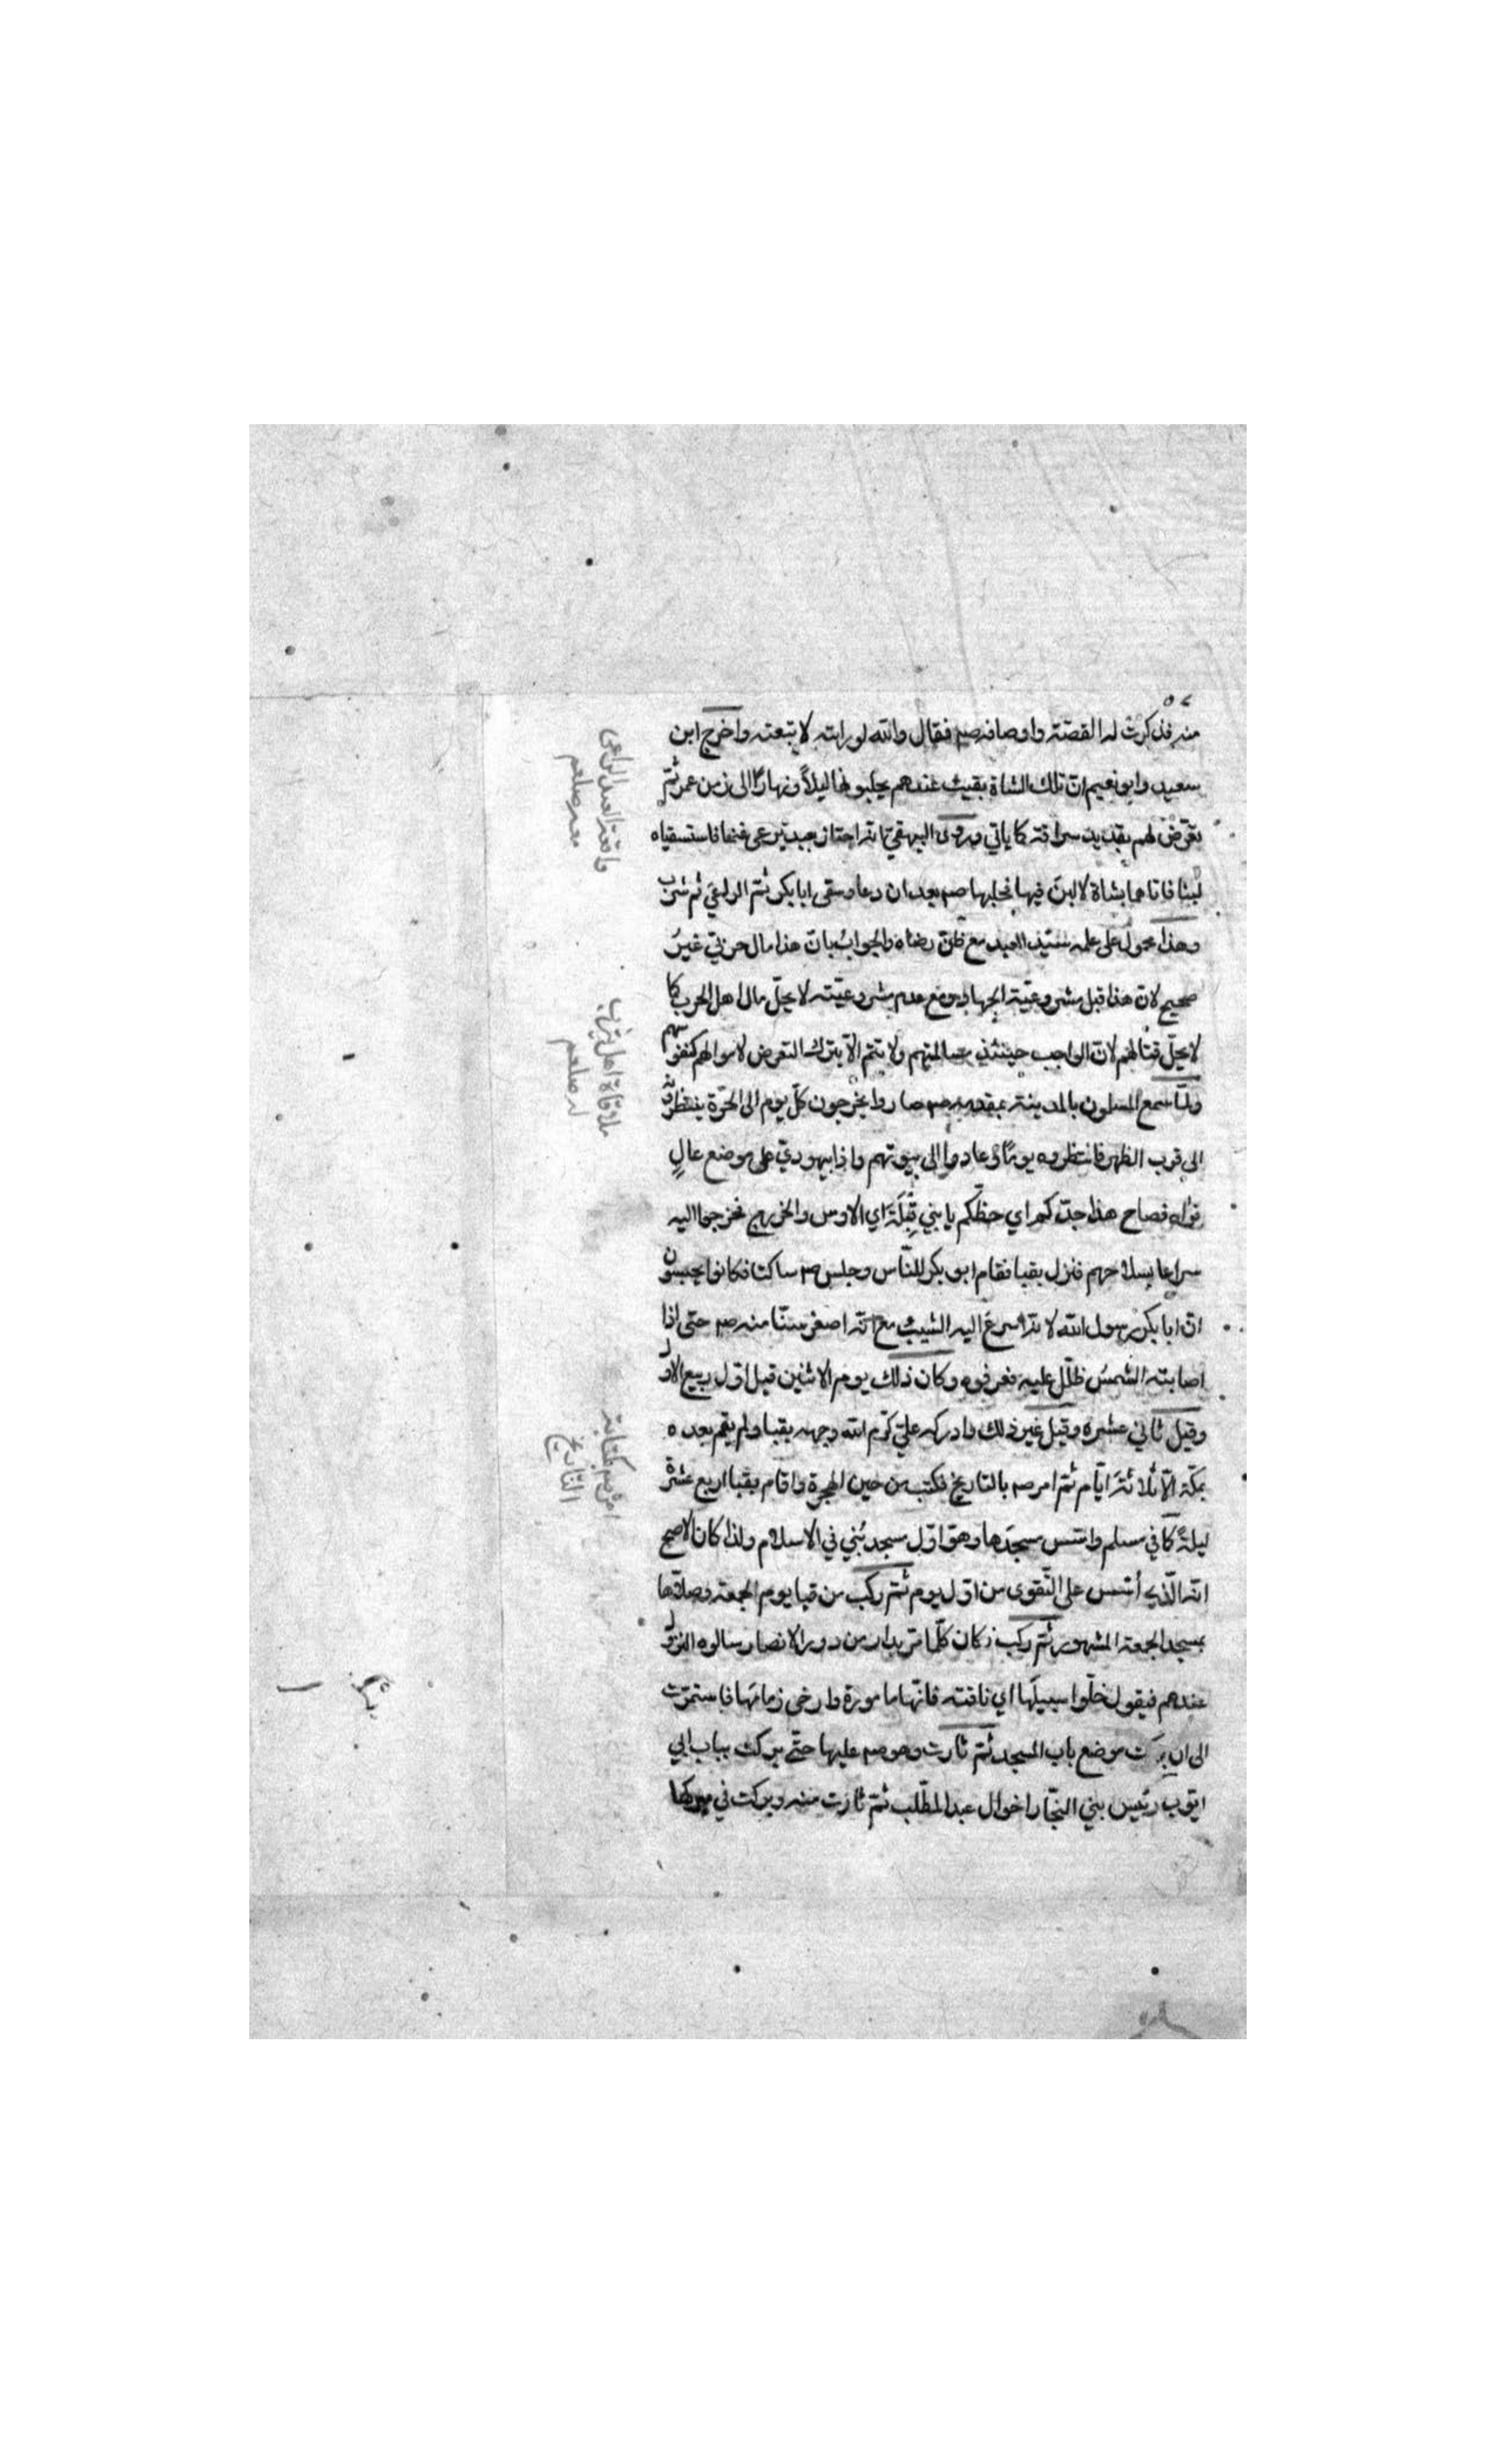 منه فذكرت له القصة واوصافه صم فقال والله لو رايته لاتبعته واخرج ابن
سعد وابو نعيم ان تلك الشاة بقيت عندهم يحلبونها ليلاً ونهارًا الى زمن عمر ثمّ
تعرّض لهم بقديد سراقة كما ياتي وروى البيهقي انه اجتاز بعبد يرعى غنما فاستسقياه
لبنا فاتاهما بشاة لا لبن فيها فحلبها صم بعد ان دعا وسقى ابا بكر ثمّ الراعي ثم شرب
وهذا محمول على علمه سيّد العبد مع ظنّ رضاه والجواب بانّ هذا مال حربيّ غيرُ
صحيح لانّ هذا قبل مشروعيّة الجهاد ومع عدم مشروعيّته لا يحلّ مال اهل الحرب كما
لا يحلّ قتالهم لانّ الواجب حينئذ مسالمتهم ولا يتمّ الّا بترك التعرض لاموالهم كنفوسهم
ولمّا سمع المسلمون بالمدينة بمقدمه صم صاروا يخرجون كلّ يوم الى الحرّة ينتظرونه
الى قرب الظهر فانتظروه يومًا وعادوا الى بيوتهم واذا بيهوديّ على موضع عالٍ
فراه فصاح هذا جدّكم اي حظّكم يا بني قِيلَة اي الاوس والخزرج فخرجوا اليه
سراعا بسلاحهم فنزل بقبا فقام ابو بكر للنّاس وجلس صم ساكتا فكانوا يحسبون
انّ ابا بكر رسول الله لانه اسرع اليه الشيب مع انّه اصغر سنّا منه صم حتى اذا
اصابته الشمسُ ظلّل عليه فعرفوه وكان ذلك يوم الاثنين قيل اوّل ربيع الاول
وقيل ثاني عشره وقيل غير ذلك وادركه عليّ كرّم الله وجهه بقبا ولم يقم بعده
بمكّة الّا ثلاثة ايّام ثمّ امر صم بالتاريخ فكتب من حين الهجرة واقام بقبا اربع عشرة
ليلةً كما في مسلم واسّس مسجدَها وهو اوّل مسجد بُني في الاسلام ولذا كان الاصح
انّه الّذي أُسّس على التّقوى من اوّل يوم ثمّ ركب من قبا يوم الجمعة وصلّاها
بمسجد الجمعة المشهور ثمّ ركب فكان كلّما مرّ بدار من دور الانصار سالوه النزول
عندهم فيقول خلّوا سبيلَها اي ناقته فانّها مامورة وارخى زمامَها فاستمرّت
الى ان بركت موضع باب المسجد ثمّ ثارت وهو صم عليها حتّى بركت بباب ابي
ايّوب رئيس بني النجّار اخوال عبد المطّلب ثمّ ثارت منه وبركت في مبركها
واقعة العبد الراعى
معه صلعم
ملاقاة اهل يثرب
له صلعم
امره صم بكتابة
التاريخ